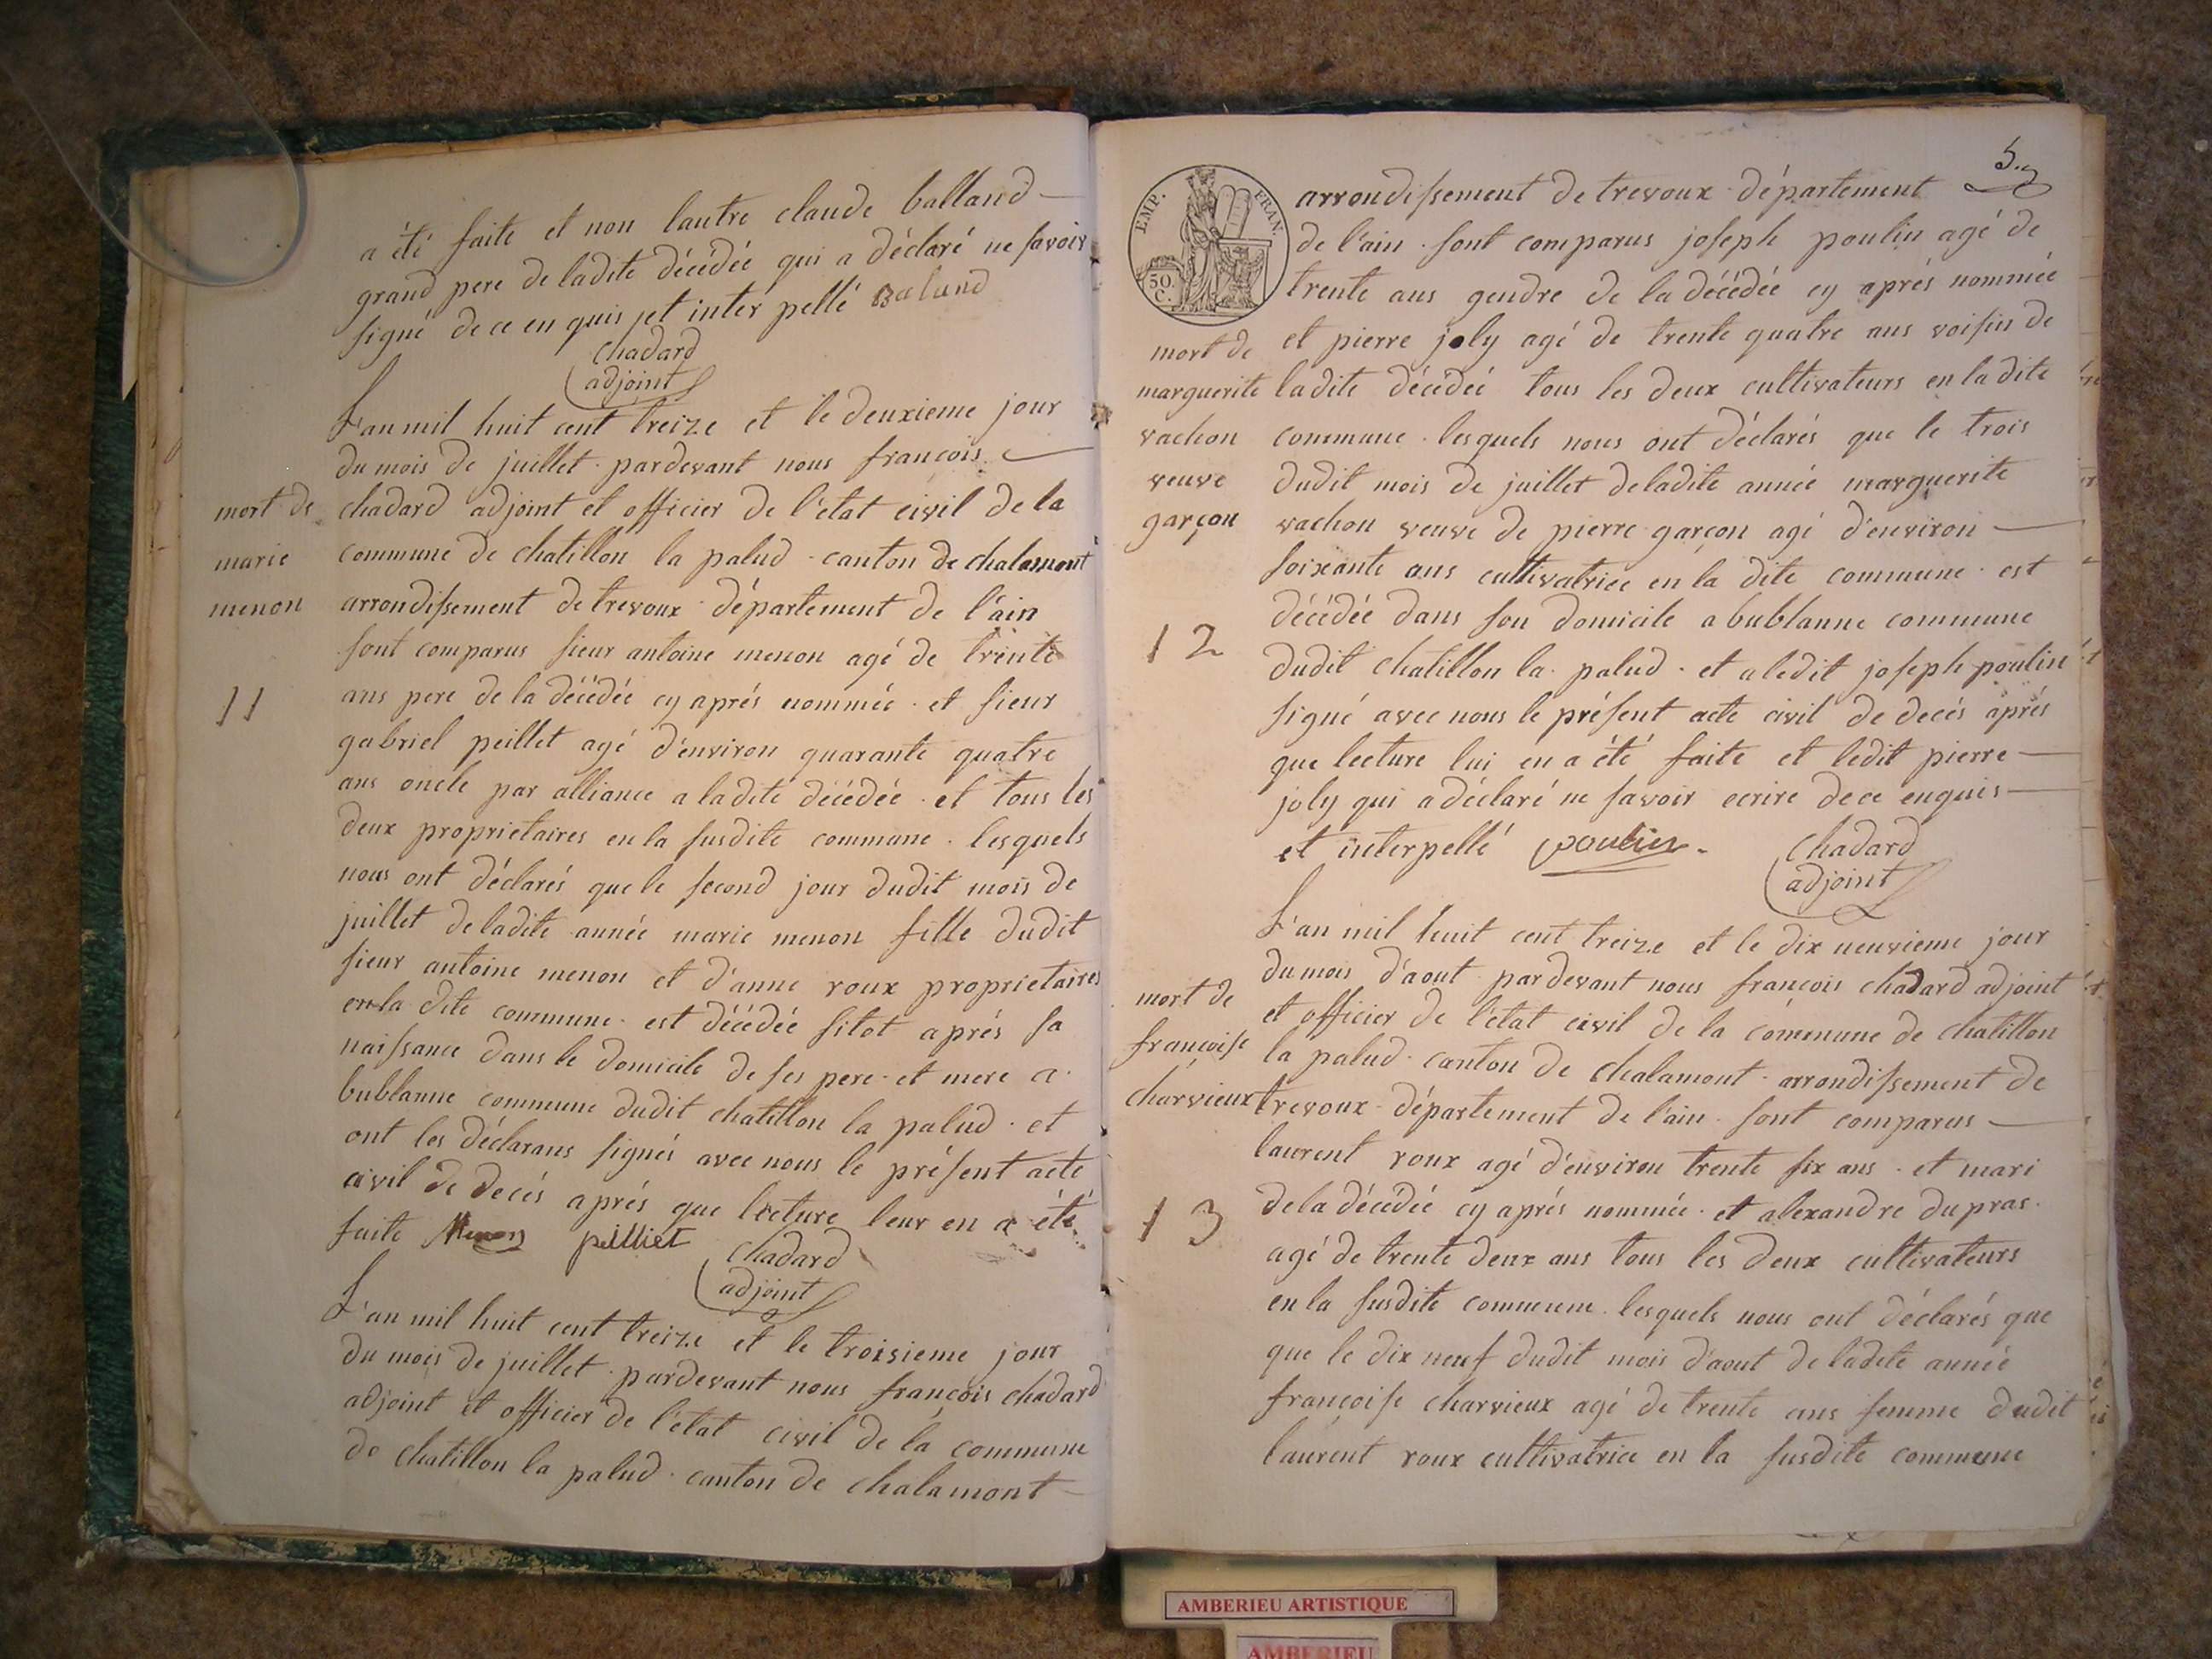 a été faite et non lautre claude balland
grand pere de ladite décédée qui a déclaré ne savoir
signé de ce en quis et inter pellé Baland
Chadard
adjoint
L'an mil huit cent treize et le deuxieme jour
du mois de juillet pardevant nous francois
mort de
marie
menon
11
chadard adjoint et officier de l'état civil de la
commune de chatillon la palud canton de chalamont
arrondissement de trevoux département de l'ain
sont comparus sieur antoine menon agé de trente
ans pere de la décédée cy aprés nommée et sieur
gabriel peillet agé d'environ quarante quatre
ans oncle par alliance a ladite décédée et tous les
deux proprietaires en la susdite commune lesquels
nous ont déclarés que le second jour dudit mois de
juillet de ladite année marie menon fille dudit
sieur antoine menon et d'anne roux proprietaires
en la dite commune est décédée sitot aprés sa
naissance dans le domicile de ses pere et mere a
bublanne commune dudit chatillon la palud et
ont les déclarans signés avec nous le présent acte
civil de decés aprés que lecture leur en a été
faite Menon peilliet Chadard
adjoint
L'an mil huit cent treize et le troisieme jour
du mois de juillet pardevant nous françois chadard
adjoint et officier de l'état civil de la commune
de chatillon la palud canton de chalamont
5
EMP. FRAN.
50 C.
arrondissement de trevoux département
de l'ain sont comparus joseph poulin agé de
trente ans gendre de la décédée cy aprés nommée
mort de
marguerite
vachon
veuve
garçon
12
et pierre joly agé de trente quatre ans voisin de
ladite décédée tous les deux cultivateurs en ladite
commune lesquels nous ont déclarés que le trois
dudit mois de juillet de ladite année marguerite
vachon veuve de pierre garçon agé d'environ
soixante ans cultivatrice en la dite commune est
décédée dans son domicile a bublanne commune
dudit chatillon la palud et a ledit joseph poulin
signé avec nous le présent acte civil de decés aprés
que lecture lui en a été faite et ledit pierre
joly qui a déclaré ne savoir ecrire de ce enquis
et interpellé poulin Chadard
adjoint
L'an mil huit cent treize et le dix neuvieme jour
du mois d'aout pardevant nous françois chadard adjoint
mort de
françoise
charvieux
13
et officier de l'état civil de la commune de chatillon
la palud canton de chalamont arrondissement de
trevoux département de l'ain sont comparus
laurent roux agé d'environ trente six ans et mari
de la décédée cy aprés nommée et alexandre dupras
agé de trente deux ans tous les deux cultivateurs
en la susdite commune lesquels nous ont déclarés que
que le dix neuf dudit mois d'aout de ladite année
françoise charvieux agé de trente ans femme dudit
laurent roux cultivatrice en la susdite commune
AMBERIEU ARTISTIQUE
AMBERIEU